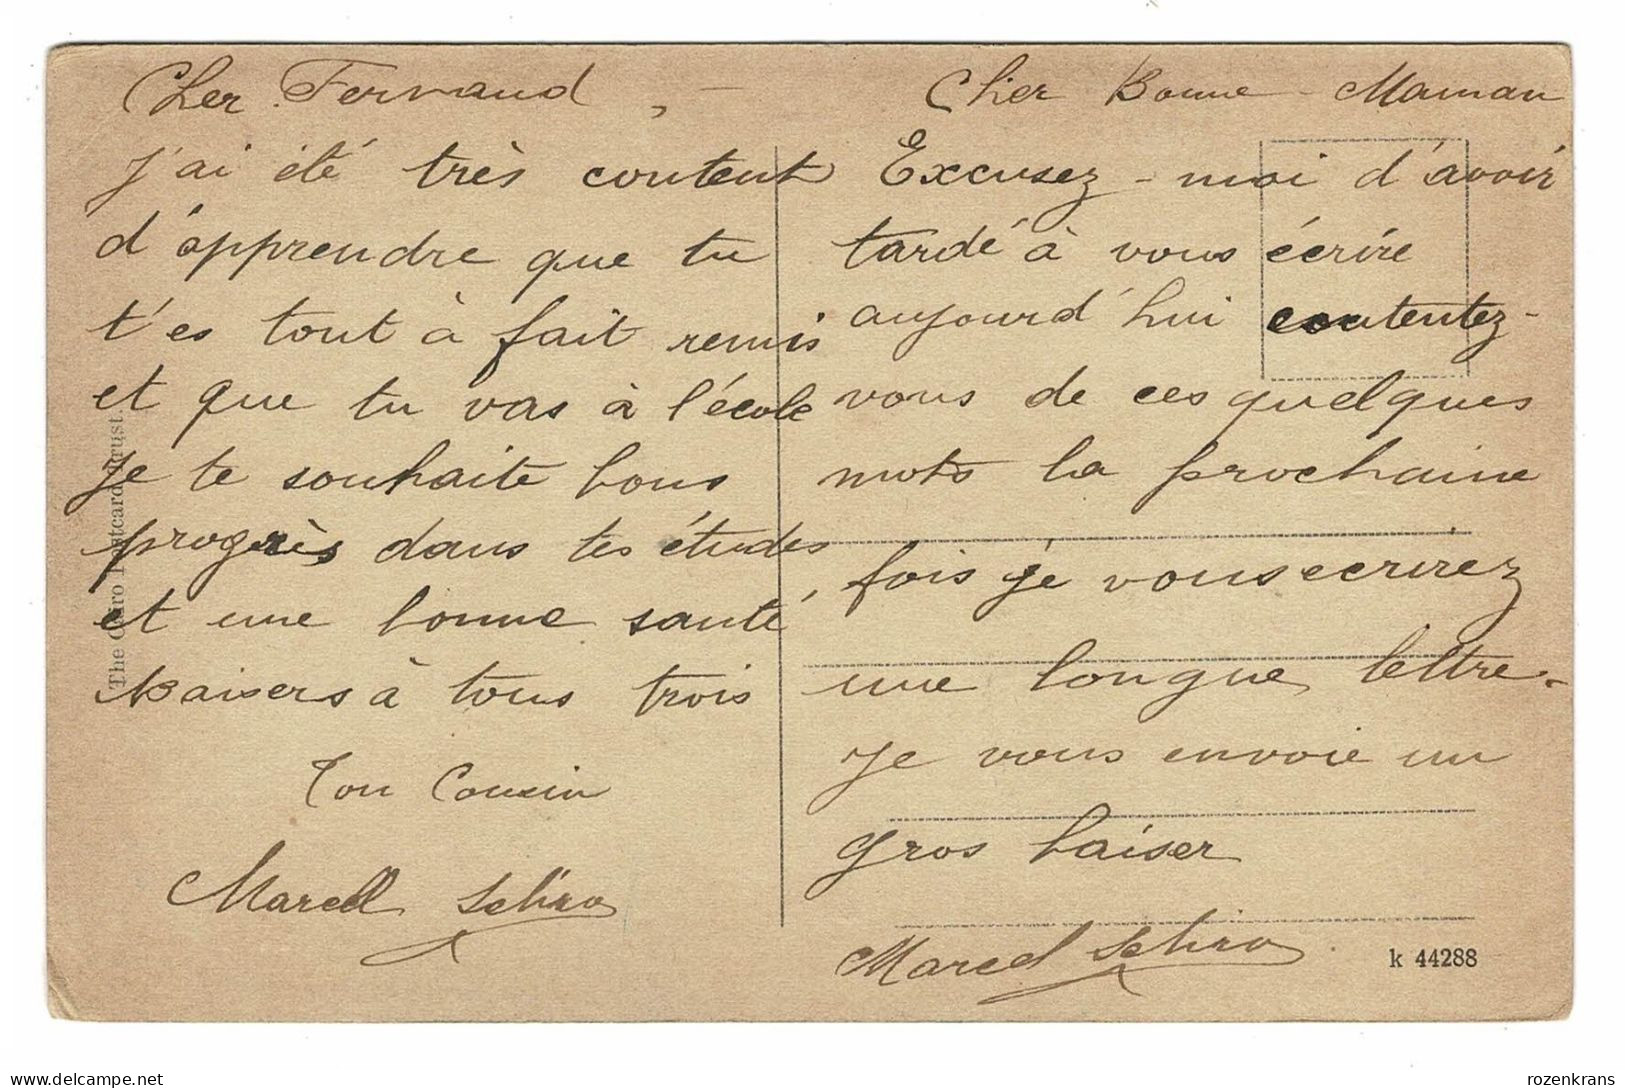 Cher Fernand, -
J'ai été très content
d'apprendre que tu
t'es tout à fait remis
et que tu vas à l'école
Je te souhaite bons
progrès dans tes études
et une bonne santé,
Baisers à tous trois
Ton Cousin
Marcel
Cher Bonne - Maman
Excusez - moi d'avoir
tardé à vous écrire
aujourd'hui contentez-
vous de ces quelques
mots la prochaine
fois je vous ecrirez
une longue lettre.
Je vous envoie un
gros baiser
Marcel
The Cairo Postcard Trust.
k 44288
rozenkrans